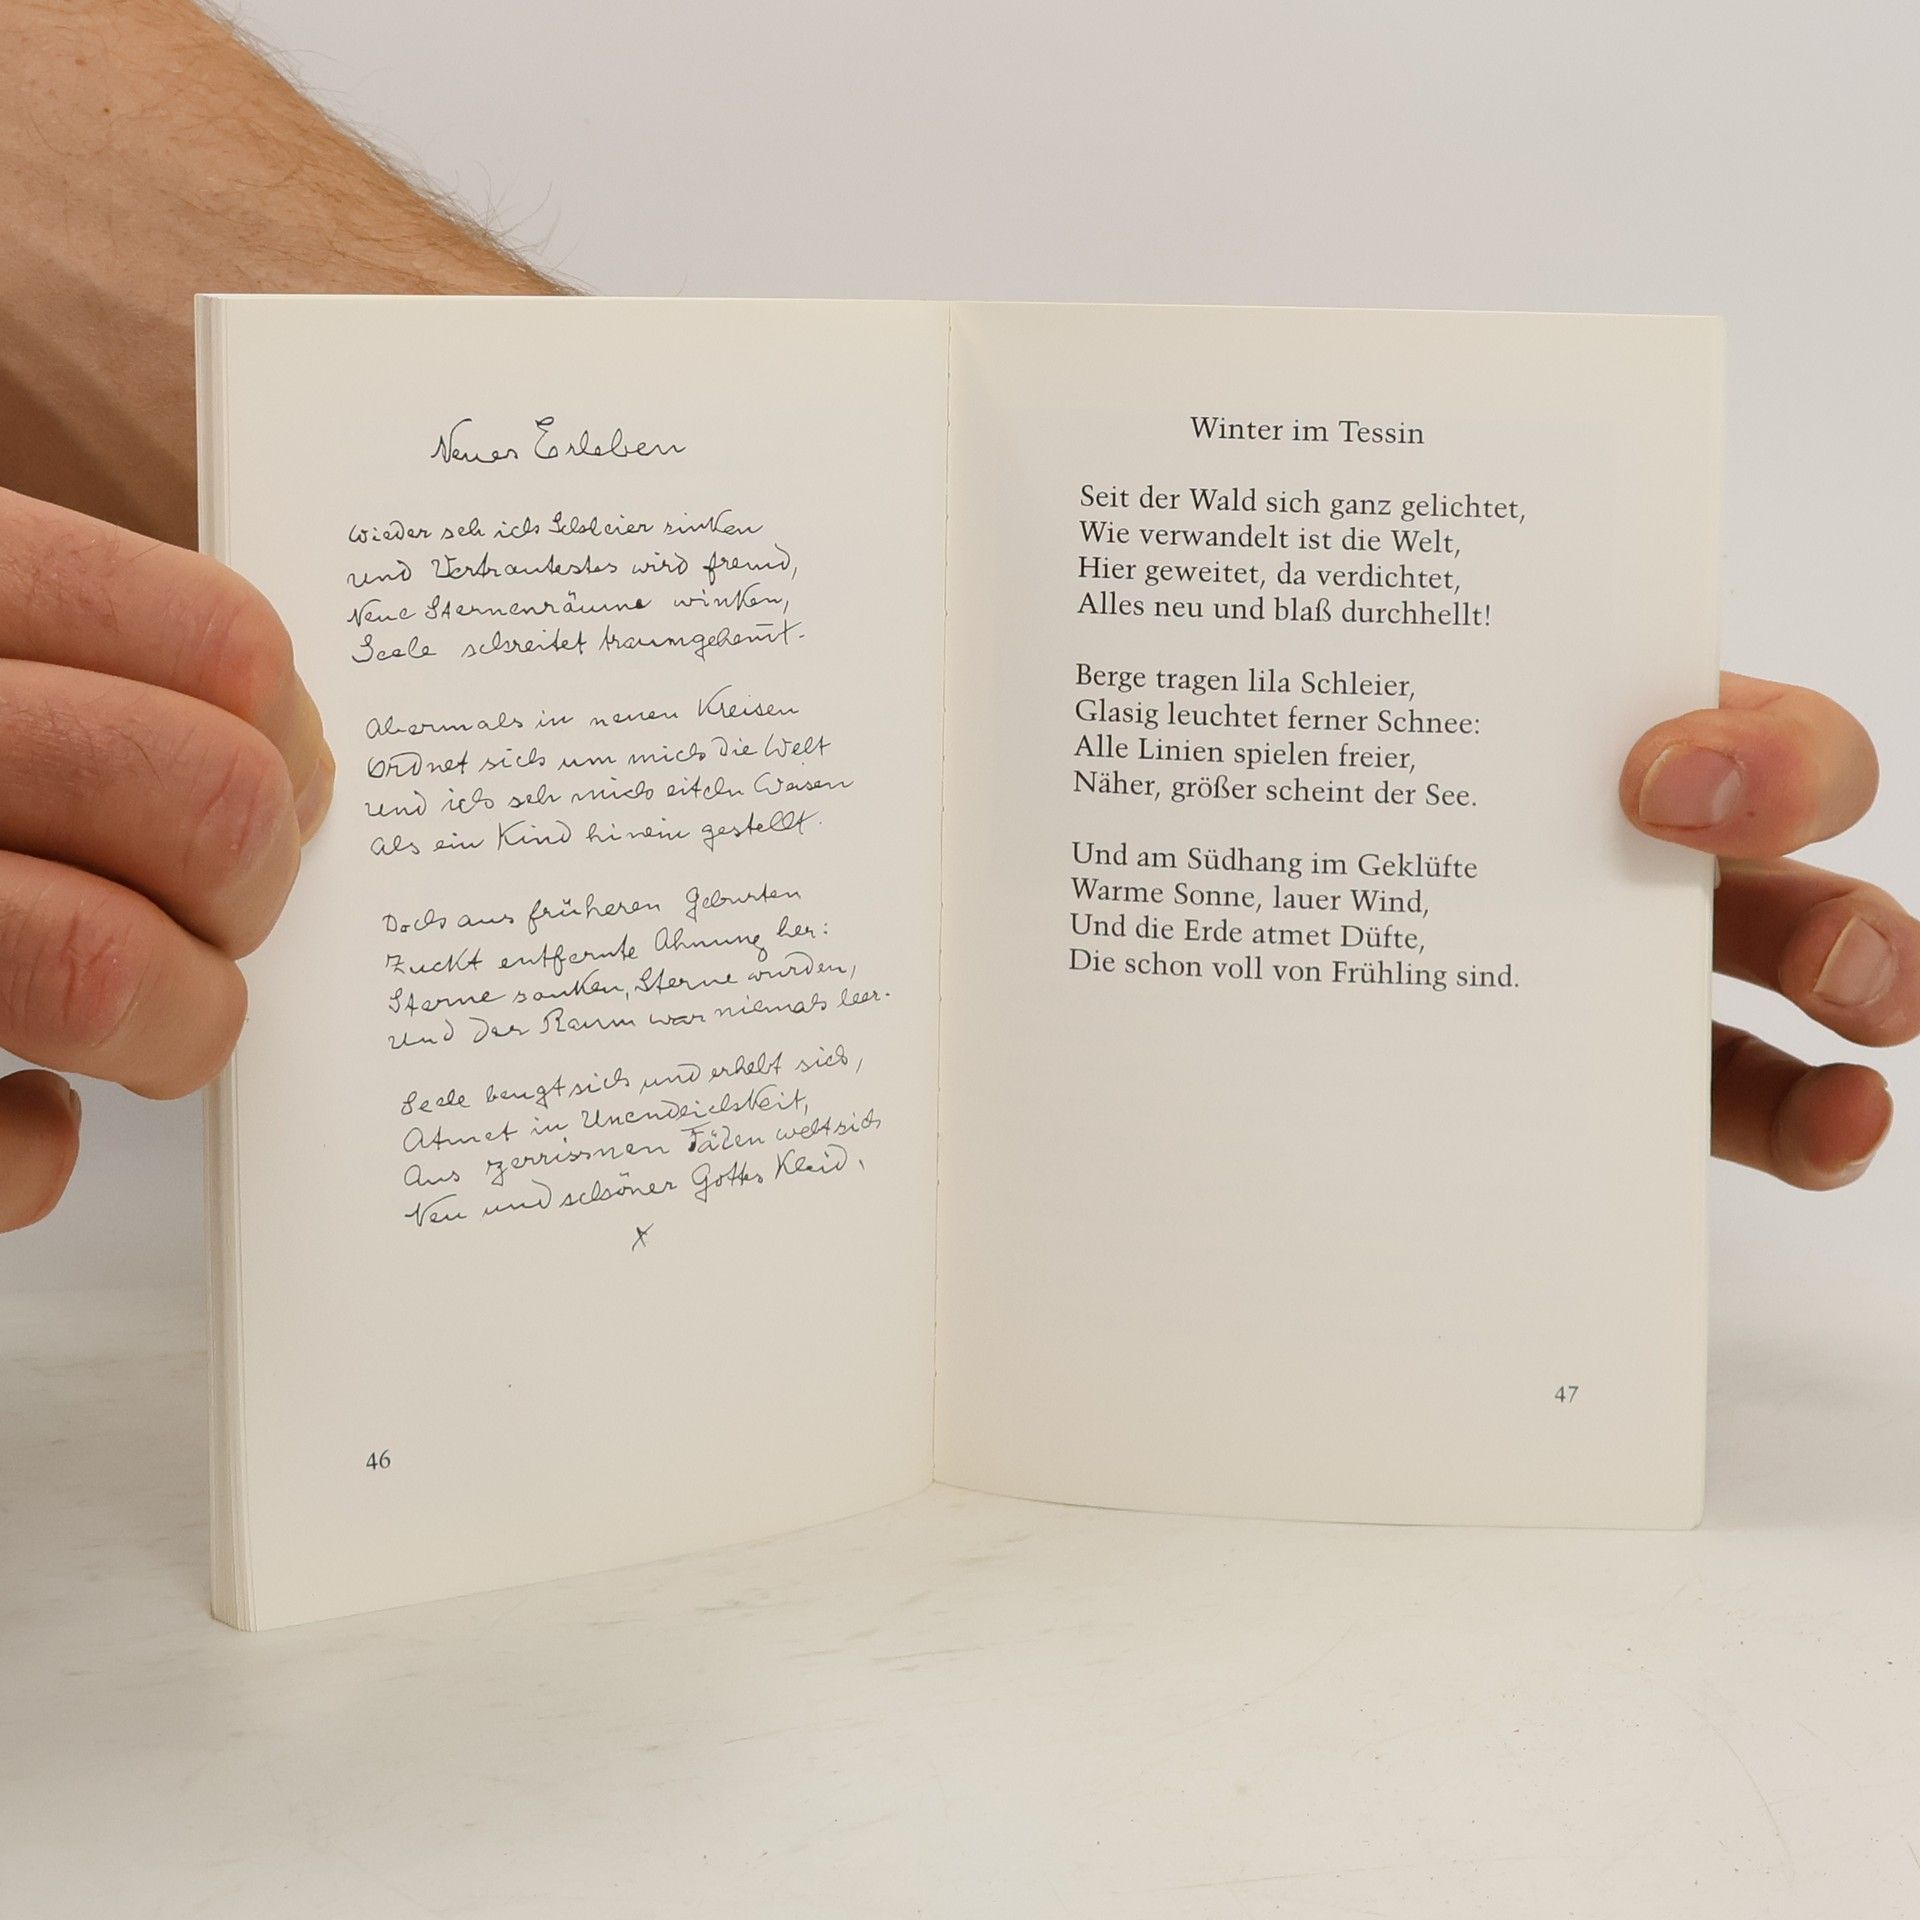 Neues Erleben
Wieder seh ich Schleier sinken
und Vertrautestes wird fremd,
Neue Sternenräume winken,
Seele schreitet traumgehemt.
Abermals in neuen Kreisen
Ordnet sich um mich die Welt
und ich seh mich eiteln Weisen
als ein Kind hinein gestellt.
Doch aus früheren Geburten
Zuckt entfernte Ahnung her:
Sterne sanken, Sterne wurden,
Und der Raum war niemals leer.
Seele beugt sich und erhebt sich,
Atmet in Unendlichkeit,
Aus zerrissnen Fäden webt sich
Neu und schöner Gottes Kleid.
46
Winter im Tessin
Seit der Wald sich ganz gelichtet,
Wie verwandelt ist die Welt,
Hier geweitet, da verdichtet,
Alles neu und blaß durchhellt!
Berge tragen lila Schleier,
Glasig leuchtet ferner Schnee:
Alle Linien spielen freier,
Näher, größer scheint der See.
Und am Südhang im Geklüfte
Warme Sonne, lauer Wind,
Und die Erde atmet Düfte,
Die schon voll von Frühling sind.
47